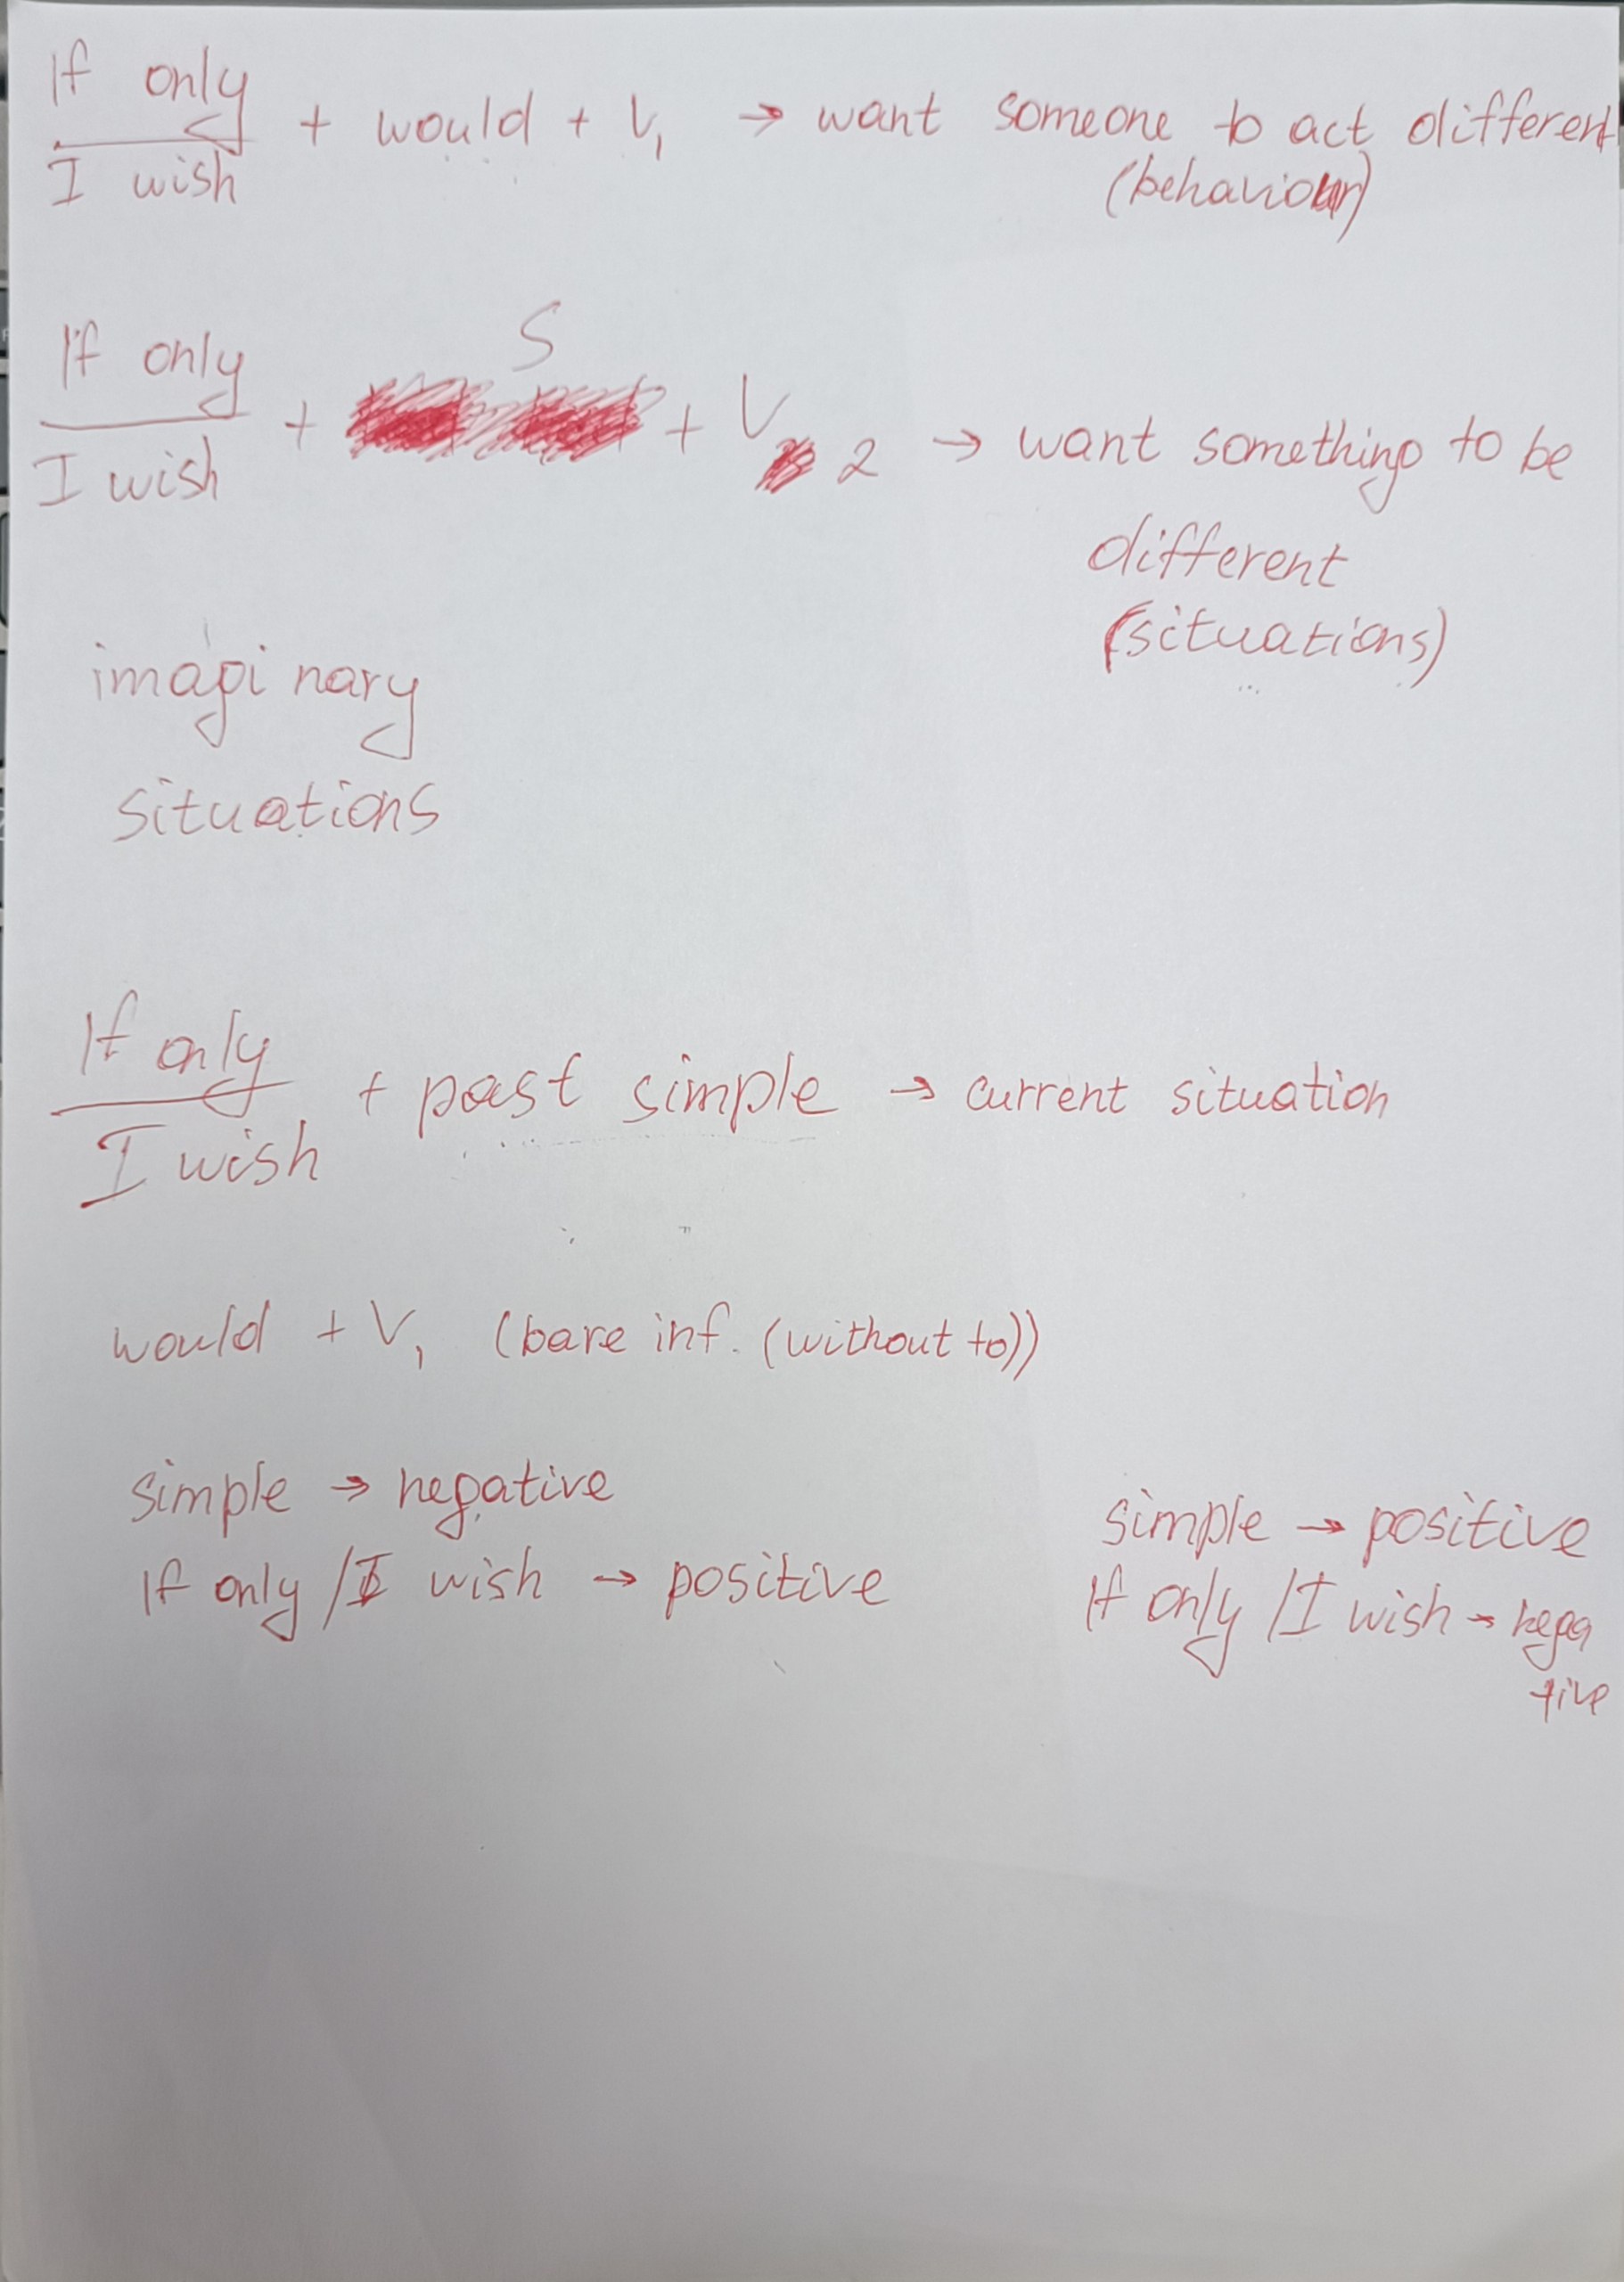 If only
I wish
+ would + V1 → want someone to act different
(behaviour)
If only
I wish
+ S + V2 → want something to be
different
(situations)
imagi nary
situations
If only
I wish
+ past simple → current situation
would + V1 (bare inf. (without to))
simple → negative
If only / I wish → positive
simple → positive
If only / I wish → nega
tive